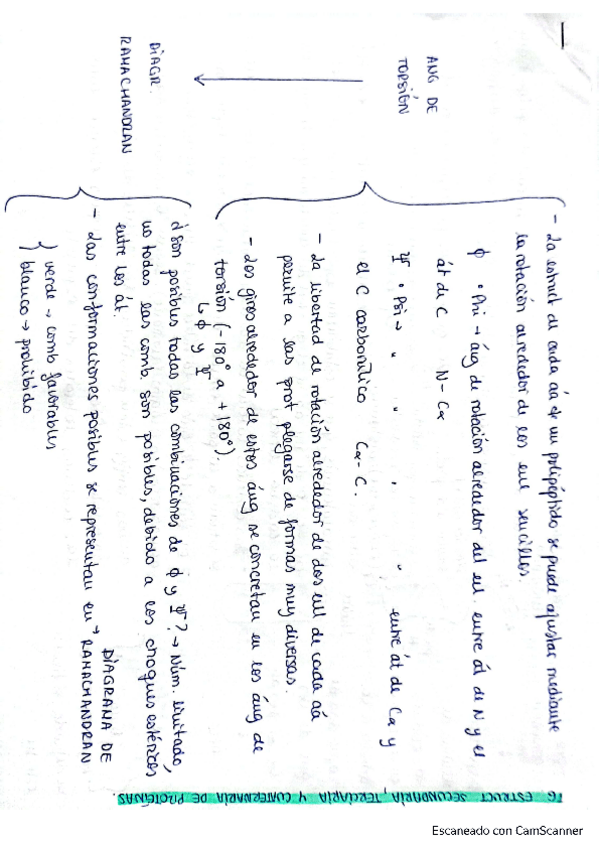 T6 ESTRUCT SECUNDARIA, TERCIARIA Y CUATERNARIA DE PROTEÍNAS.
ANG DE
TORSIÓN
- La estruct de cada aá de un polipéptido se puede ajustar mediante
la rotación alrededor de los enl sencillos.
ϕ • Phi → áng de rotación alrededor del enl entre át de N y el
át de C N-Cα
Ψ • Psi → " " " " entre át de Cα y
el C carbonílico Cα-C.
- La libertad de rotación alrededor de dos enl de cada aá
permite a las prot plegarse de formas muy diversas.
- Los giros alrededor de estos áng se concretan en los áng de
torsión (-180° a +180°).
↳ ϕ y Ψ
DIAGR.
RAMACHANDRAN
¿Son posibles todas las combinaciones de ϕ y Ψ? → Núm. limitado,
no todas las comb. son posibles, debido a los choques estéricos
entre los át.
- Las conformaciones posibles se representan en → DIAGRAMA DE
RAMACHANDRAN
verde → comb favorables
blanco → prohibido
Escaneado con CamScanner